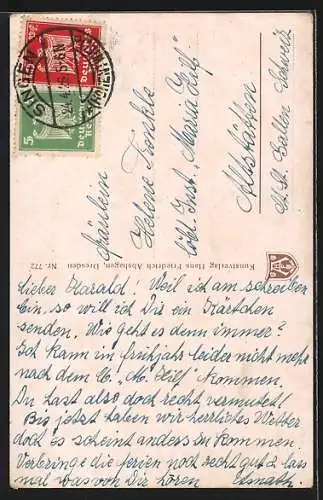 SINGEN
(HOHENTWIEL)
5
Deutsches
Reich
Fräulein
Helene Künkle
löbl. Inst. „Maria Hilf"
Altstätten
Kt. St. Gallen Schweiz
Kunstverlag Hans Friedrich Abshagen, Dresden
Nr. 772
Lieber Harald! Weil ich am schreiben
bin, so will ich Dir ein Kärtchen
senden. Wie geht es denn immer?
Ich kann im Frühjahr leider nicht mehr
nach dem „M. Hilf" kommen.
Du hast also doch recht vermutet!
Bis jetzt haben wir herrliches Wetter
doch es scheint anders zu kommen.
Verbringe die Ferien noch recht gut & lass
mal was von Dir hören